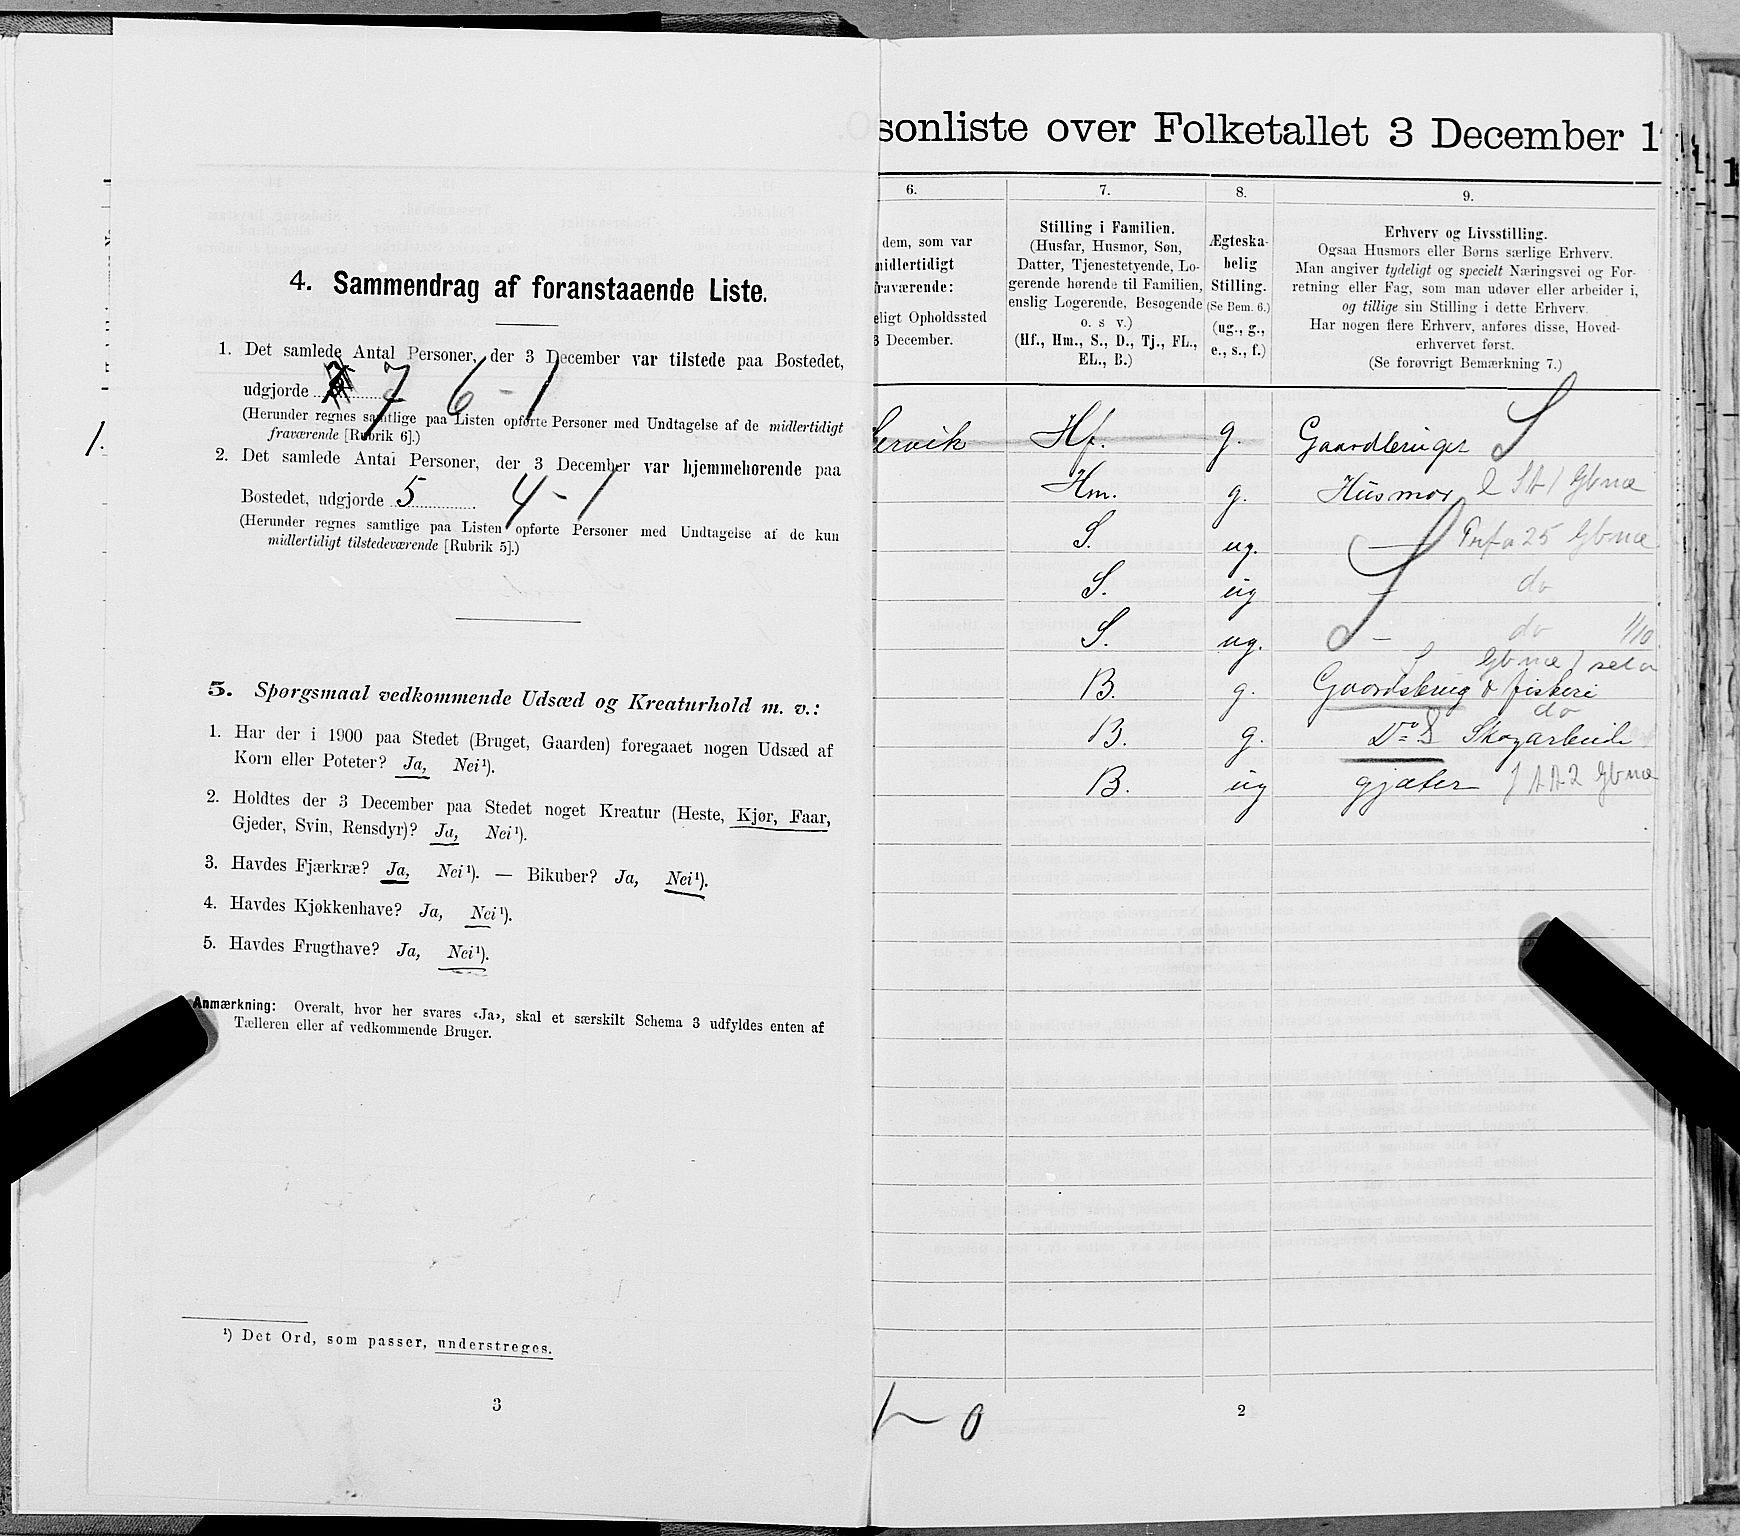 4. Sammendrag af foranstaaende Liste.
1. Det samlede Antal Personer, der 3 December var tilstede paa Bostedet,
udgjorde 7 6 - 1
(Herunder regnes samtlige paa Listen opførte Personer med Undtagelse af de midlertidigt
fraværende [Rubrik 6].)
1.
2. Det samlede Antal Personer, der 3 December var hjemmehørende paa
Bostedet, udgjorde 5 4 - 1
(Herunder regnes samtlige paa Listen opførte Personer med Undtagelse af de kun
midlertidigt tilstedeværende [Rubrik 5].)
5. Spørgsmaal vedkommende Udsæd og Kreaturhold m. v.:
1. Har der i 1900 paa Stedet (Bruget, Gaarden) foregaaet nogen Udsæd af
Korn eller Poteter? Ja, Nei¹).
2. Holdtes der 3 December paa Stedet noget Kreatur (Heste, Kjør, Faar,
Gjeder, Svin, Rensdyr)? Ja, Nei¹).
3. Havdes Fjærkræ? Ja, Nei¹). — Bikuber? Ja, Nei¹).
4. Havdes Kjøkkenhave? Ja, Nei¹).
5. Havdes Frugthave? Ja, Nei¹).
Anmærkning: Overalt, hvor her svares «Ja», skal et særskilt Schema 3 udfyldes enten af
Tælleren eller af vedkommende Bruger.
¹) Det Ord, som passer, understreges.
3
sonliste over Folketallet 3 December 1
6.
dem, som var
midlertidigt
fraværende:
eligt Opholdssted
3 December.
7.
Stilling i Familien.
(Husfar, Husmor, Søn,
Datter, Tjenestetyende, Lo-
gerende hørende til Familien,
enslig Logerende, Besøgende
o. s v.)
(Hf., Hm., S., D., Tj., FL.,
EL., B.)
8.
Ægteska-
belig
Stilling.
(Se Bem. 6.)
(ug., g.,
e., s., f.)
9.
Erhverv og Livsstilling.
Ogsaa Husmors eller Børns særlige Erhverv.
Man angiver tydeligt og specielt Næringsvei og For-
retning eller Fag, som man udøver eller arbeider i,
og tillige sin Stilling i dette Erhverv.
Har nogen flere Erhverv, anføres disse, Hoved-
erhvervet først.
(Se forøvrigt Bemærkning 7.)
ervik Hf. g. Gaardbruger S
Hm. g. Husmor
S. ug. — 25 Gbnæ
S. ug - do
S. ug. - do 1/10
Gbnæ
B. g. Gaardsbrug & fiskeri
do
B. g. Do S Skogarbeide
B. ug gjæter Gbnæ
1 — 0
2